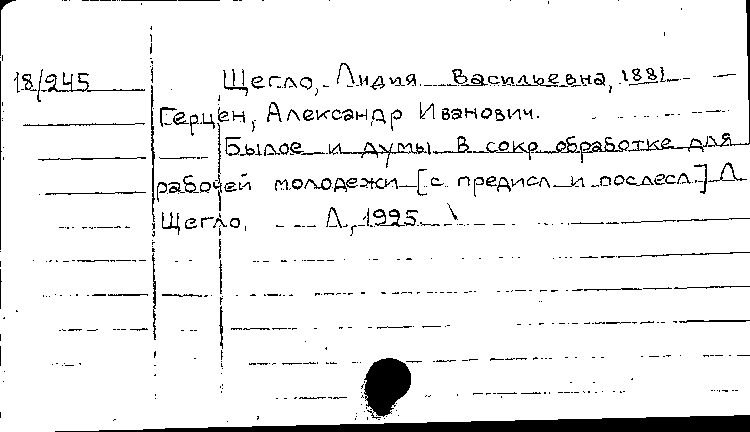 18/245 Щегло, Лидия Васильевна, 1881
Герцен, Александр Иванович.
Былое и думы. В сокр обработке для
рабочей молодежи [с предисл и послесл.] Л
Щегло. Л, 1925.